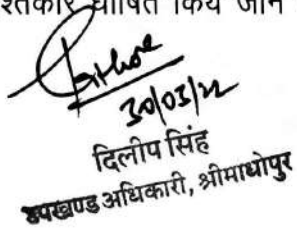 घोषित किये जाने
30/03/22
दिलीप सिंह
उपखण्ड अधिकारी, श्रीमाधोपुर